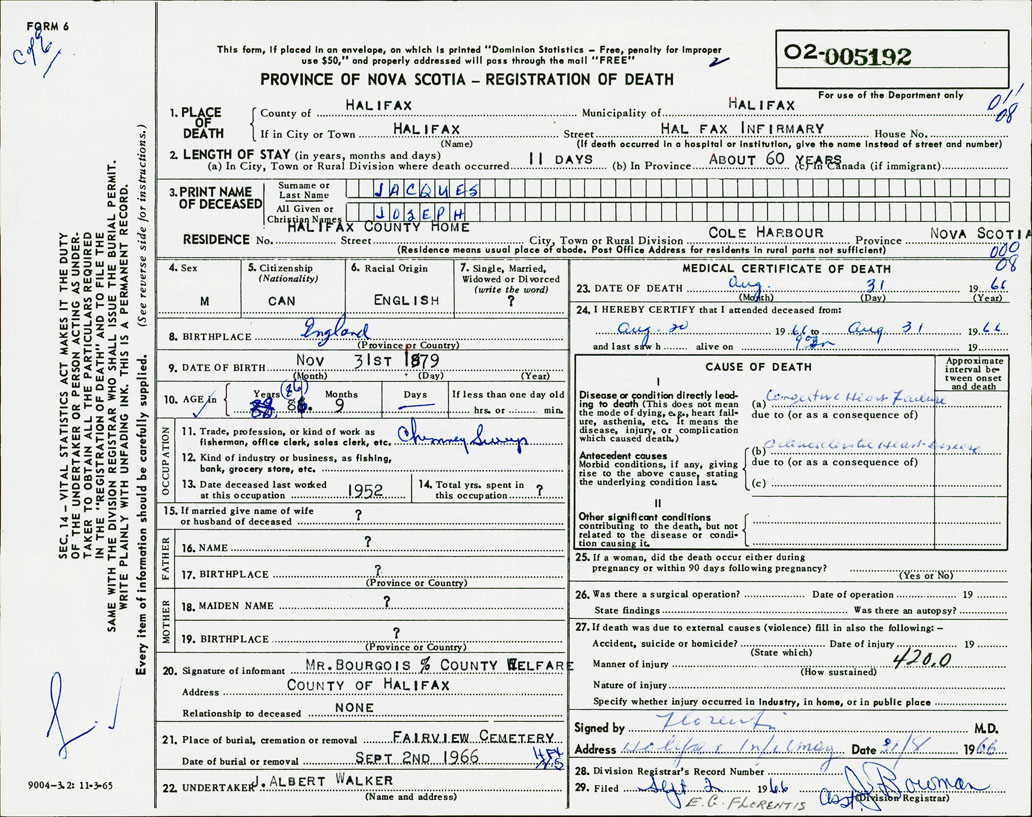 FORM 6
This form, if placed in an envelope, on which is printed "Dominion Statistics – Free, penalty for improper
use $50," and properly addressed will pass through the mail "FREE"
2
O2-005192
PROVINCE OF NOVA SCOTIA – REGISTRATION OF DEATH
For use of the Department only
011
08
1. PLACE OF DEATH
County of HALIFAX Municipality of HALIFAX
If in City or Town HALIFAX Street HAL FAX INFIRMARY House No.
(Name) (If death occurred in a hospital or institution, give the name instead of street and number)
2. LENGTH OF STAY (in years, months and days)
(a) In City, Town or Rural Division where death occurred 11 DAYS (b) In Province ABOUT 60 YEARS (c) In Canada (if immigrant)
3. PRINT NAME OF DECEASED
Surname or Last Name JACQUES
All Given or Christian Names JOSEPH
HALIFAX COUNTY HOME
RESIDENCE No. Street City, Town or Rural Division COLE HARBOUR Province NOVA SCOTIA
(Residence means usual place of abode. Post Office Address for residents in rural parts not sufficient)
000
08
4. Sex
M
5. Citizenship
(Nationality)
CAN
6. Racial Origin
ENGLISH
7. Single, Married,
Widowed or Divorced
(write the word)
?
8. BIRTHPLACE England
(Province or Country)
9. DATE OF BIRTH NOV 31ST 1879
(Month) (Day) (Year)
10. AGE in Years (86) 86. Months 9 Days If less than one day old
hrs. or min.
OCCUPATION
11. Trade, profession, or kind of work as
fisherman, office clerk, sales clerk, etc. Chimney Sweep
12. Kind of industry or business, as fishing,
bank, grocery store, etc.
13. Date deceased last worked
at this occupation 1952
14. Total yrs. spent in
this occupation ?
15. If married give name of wife
or husband of deceased ?
FATHER
16. NAME ?
17. BIRTHPLACE ?
(Province or Country)
MOTHER
18. MAIDEN NAME ?
19. BIRTHPLACE ?
(Province or Country)
20. Signature of informant MR. BOURGOIS % COUNTY WELFARE
Address COUNTY OF HALIFAX
Relationship to deceased NONE
21. Place of burial, cremation or removal FAIRVIEW CEMETERY
Date of burial or removal SEPT 2ND 1966
22. UNDERTAKER J. ALBERT WALKER
(Name and address)
MEDICAL CERTIFICATE OF DEATH
23. DATE OF DEATH Aug. 31 1966
(Month) (Day) (Year)
24. I HEREBY CERTIFY that I attended deceased from:
Aug. 20 1966 to Aug 31 1966
and last saw h alive on 19
CAUSE OF DEATH
Approximate
interval be-
tween onset
and death
I
Disease or condition directly lead-
ing to death (This does not mean
the mode of dying, e.g., heart fail-
ure, asthenia, etc. It means the
disease, injury, or complication
which caused death.)
(a) Congestive Heart Failure
due to (or as a consequence of)
Antecedent causes
Morbid conditions, if any, giving
rise to the above cause, stating
the underlying condition last.
(b) Heart disease
due to (or as a consequence of)
(c)
II
Other significant conditions
contributing to the death, but not
related to the disease or condi-
tion causing it.
25. If a woman, did the death occur either during
pregnancy or within 90 days following pregnancy?
(Yes or No)
26. Was there a surgical operation? Date of operation 19
State findings Was there an autopsy?
27. If death was due to external causes (violence) fill in also the following: –
Accident, suicide or homicide? Date of injury 19
(State which)
Manner of injury 420.0
(How sustained)
Nature of injury
Specify whether injury occurred in industry, in home, or in public place
Signed by Florenti M.D.
Address Halifax Infirmary Date 31/8 1966
28. Division Registrar's Record Number
29. Filed Sept 2 1966 Asst. J Bowman
(Division Registrar)
E. G. FLORENTIS
SEC. 14 – VITAL STATISTICS ACT MAKES IT THE DUTY
OF THE UNDERTAKER OR PERSON ACTING AS UNDER-
TAKER TO OBTAIN ALL THE PARTICULARS REQUIRED
IN THE "REGISTRATION OF DEATH" AND TO FILE THE
SAME WITH THE DIVISION REGISTRAR WHO SHALL ISSUE THE BURIAL PERMIT.
WRITE PLAINLY WITH UNFADING INK. THIS IS A PERMANENT RECORD.
Every item of information should be carefully supplied. (See reverse side for instructions.)
9004-3.2: 11-3-65